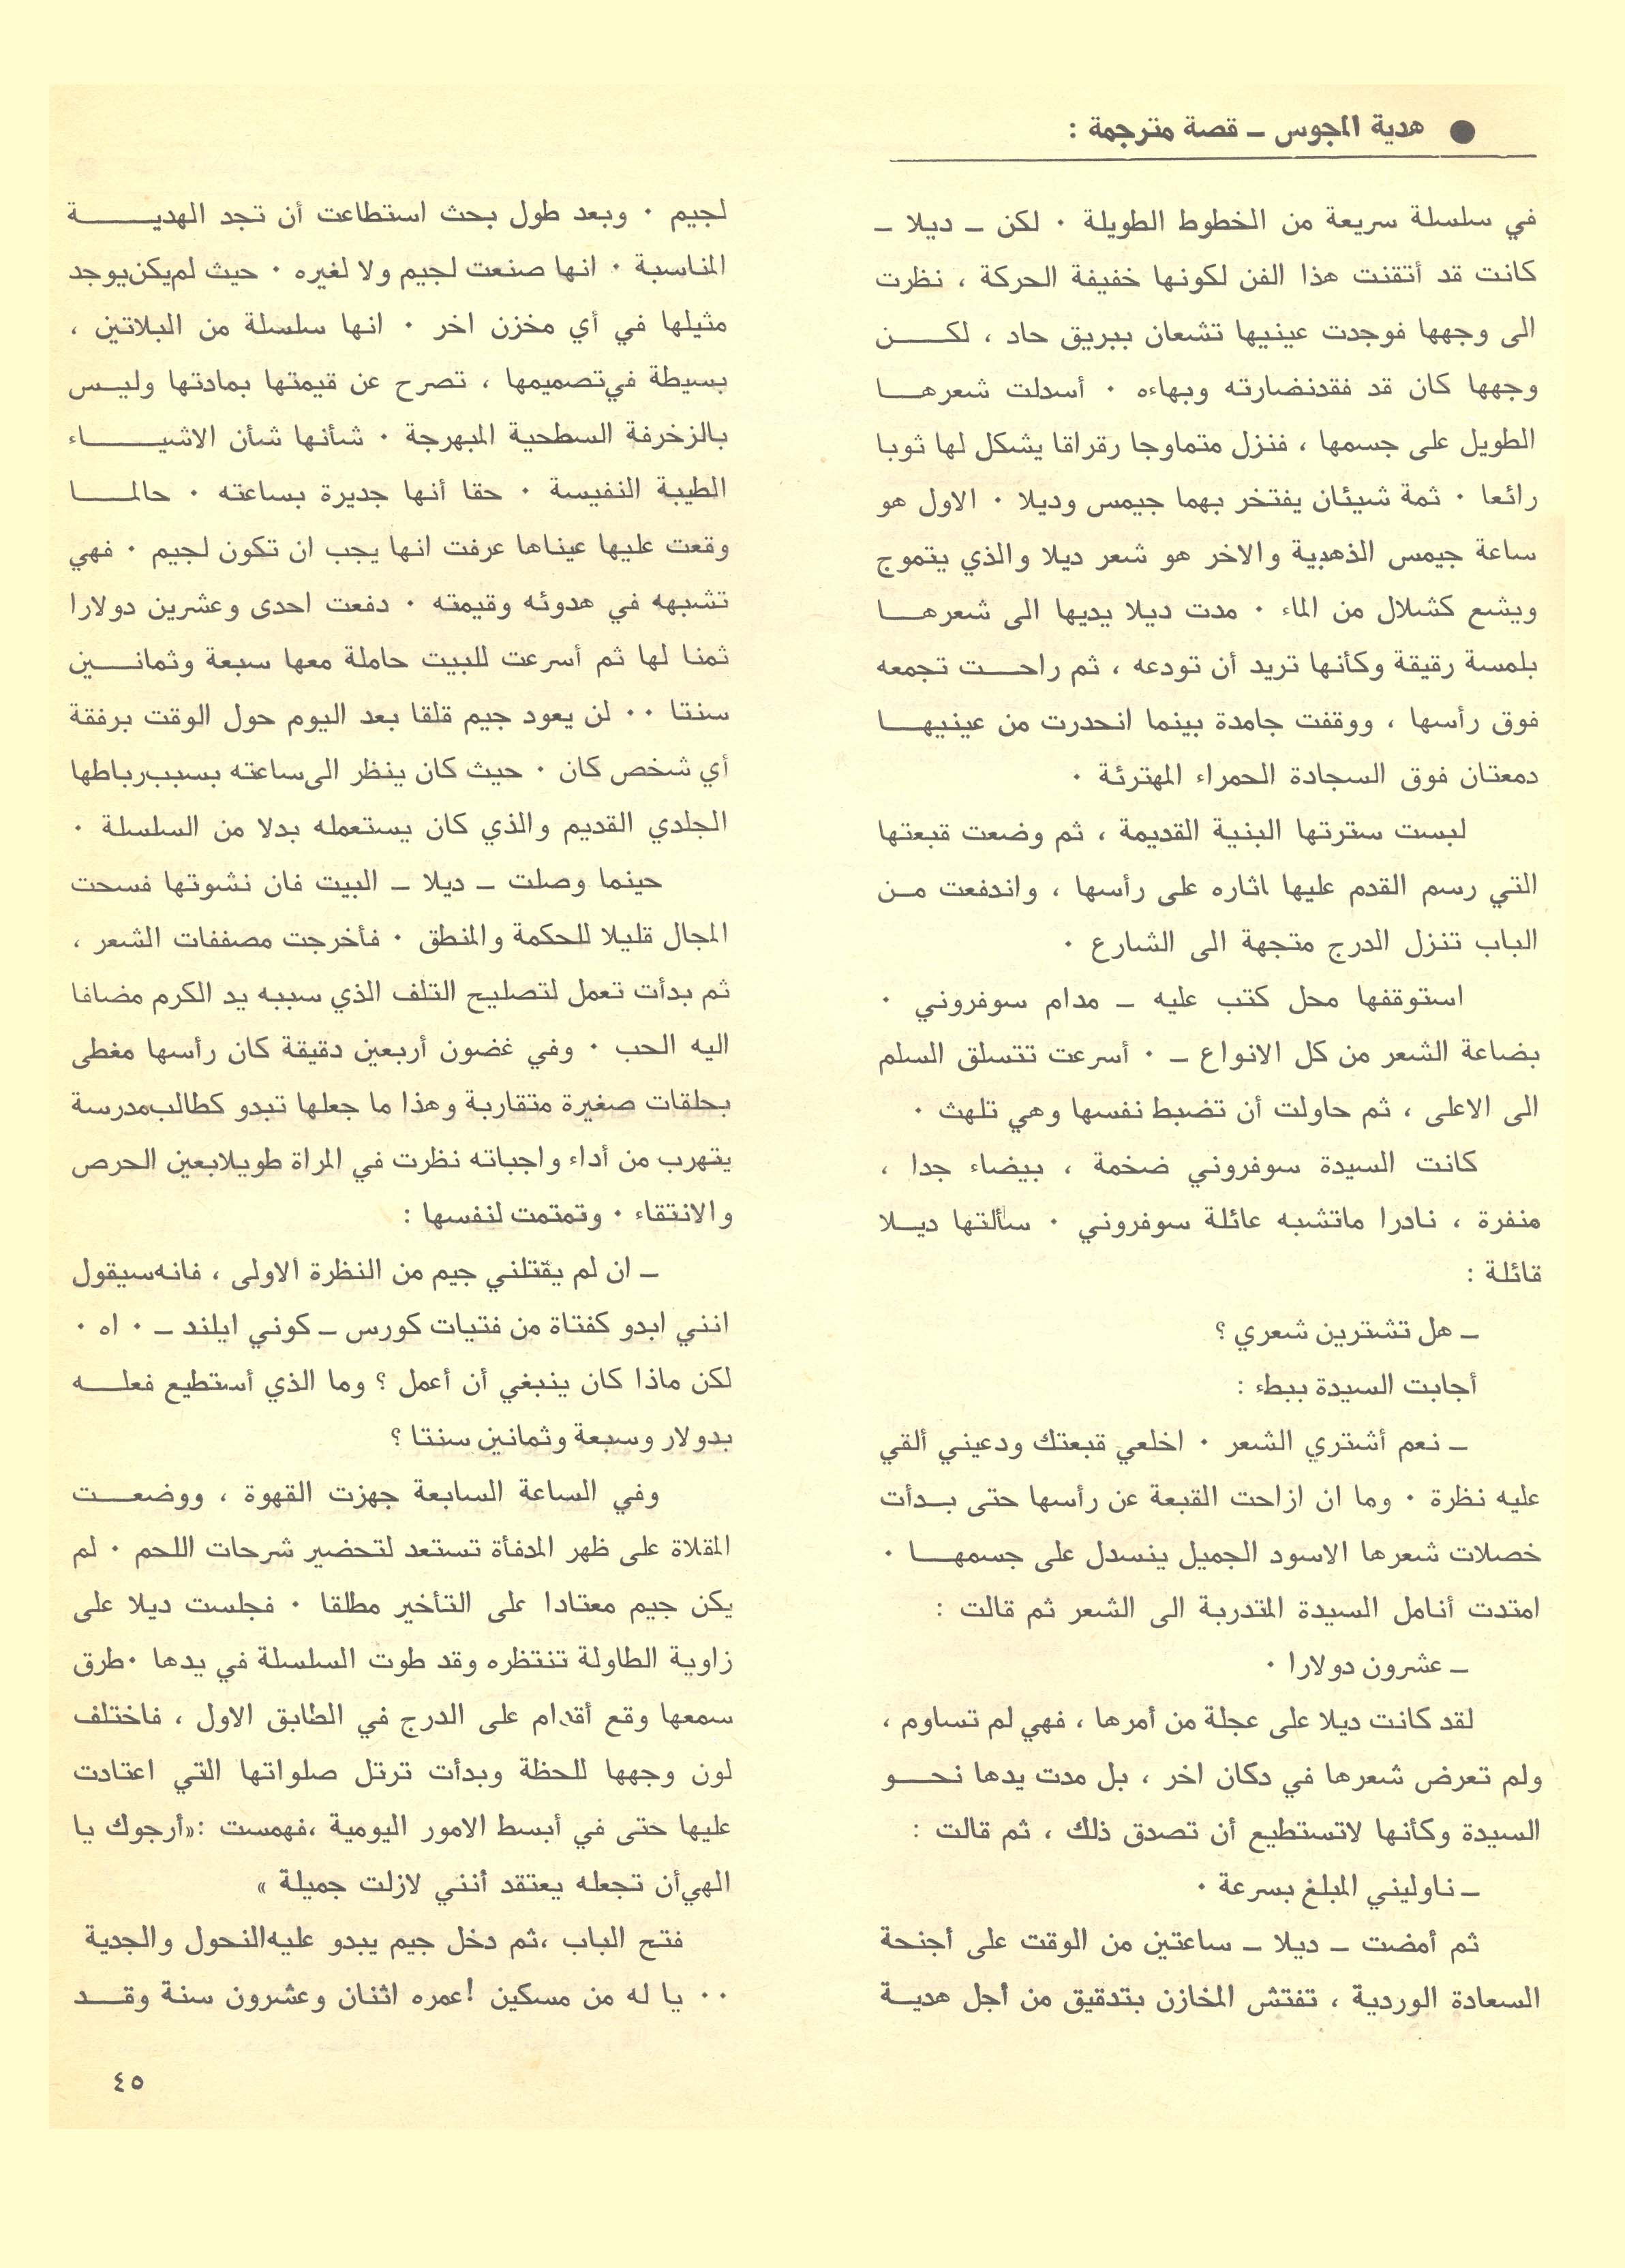 ● هدية المجوس ـ قصة مترجمة :
في سلسلة سريعة من الخطوط الطويلة ٠ لكن ـ ديلا ـ
كانت قد أتقنت هذا الفن لكونها خفيفة الحركة ، نظرت
الى وجهها فوجدت عينيها تشعان ببريق حاد ، لكــــن
وجهها كان قد فقدنضارته وبهاءه ٠ أسدلت شعرهـــا
الطويل على جسمها ، فنزل متماوجا رقراقا يشكل لها ثوبا
رائعا ٠ ثمة شيئان يفتخر بهما جيمس وديلا ٠ الاول هو
ساعة جيمس الذهبية والاخر هو شعر ديلا والذي يتموج
ويشع كشلال من الماء ٠ مدت ديلا يديها الى شعرهـــا
بلمسة رقيقة وكأنها تريد أن تودعه ، ثم راحـــت تجمعه
فوق رأسها ، ووقفت جامدة بينما انحدرت من عينيهـــا
دمعتان فوق السجادة الحمراء المهترئة ٠
لبست سترتها البنية القديمة ، ثم وضعت قبعتها
التي رسم القدم عليها اثاره على رأسها ، واندفعت مــن
الباب تنزل الدرج متجهة الى الشارع ٠
استوقفها محل كتب عليه ـ مدام سوفروني ٠
بضاعة الشعر من كل الانواع ـ ٠ أسرعت تتسلق السلم
الى الاعلى ، ثم حاولت أن تضبط نفسها وهي تلهث ٠
كانت السيدة سوفروني ضخمة ، بيضاء جدا ،
منفرة ، نادرا ماتشبه عائلة سوفروني ٠ سألتها ديــلا
قائلة :
ـ هل تشترين شعري ؟
أجابت السيدة ببطء :
ـ نعم أشتري الشعر ٠ اخلعي قبعتك ودعيني ألقي
عليه نظرة ٠ وما ان ازاحت القبعة عن رأسها حتى بــدأت
خصلات شعرها الاسود الجميل ينسدل على جسمهـــا ٠
امتدت أنامل السيدة المتدربة الى الشعر ثم قالت :
ـ عشرون دولارا ٠
لقد كانت ديلا على عجلة من أمرها ، فهي لم تساوم ،
ولم تعرض شعرها في دكان اخر ، بل مدت يدها نحــو
السيدة وكأنها لاتستطيع أن تصدق ذلك ، ثم قالت :
ـ ناوليني المبلغ بسرعة ٠
ثم أمضت ـ ديلا ـ ساعتين من الوقت على أجنحة
السعادة الوردية ، تفتش المخازن بتدقيق من أجل هديــة
لجيم ٠ وبعد طول بحث استطاعت أن تجد الهديـــــة
المناسبة ٠ انها صنعت لجيم ولا لغيره ٠ حيث لم‌يكن‌يوجد
مثيلها في أي مخزن اخر ٠ انها سلسلة من البلاتين ،
بسيطة في‌تصميمها ، تصرح عن قيمتها بمادتها وليــس
بالزخرفة السطحية المبهرجة ٠ شأنها شأن الاشيـــــاء
الطيبة النفيسة ٠ حقا أنها جديرة بساعته ٠ حالمـــا
وقعت عليها عيناها عرفت انها يجب ان تكون لجيم ٠ فهي
تشبهه في هدوئه وقيمته ٠ دفعت احدى وعشرين دولارا
ثمنا لها ثم أسرعت للبيت حاملة معها سبعة وثمانـــين
سنتا ٠٠ لن يعود جيم قلقا بعد اليوم حول الوقت برفقة
أي شخص كان ٠ حيث كان ينظر الى‌ساعته بسبب‌رباطها
الجلدي القديم والذي كان يستعمله بدلا من السلسلة ٠
حينما وصلت ـ ديلا ـ البيت فان نشوتها فسحت
المجال قليلا للحكمة والمنطق ٠ فأخرجت مصففات الشعر ،
ثم بدأت تعمل لتصليح التلف الذي سببه يد الكرم مضافا
اليه الحب ٠ وفي غضون أربعين دقيقة كان رأسها مغطى
بحلقات صغيرة متقاربة وهذا ما جعلها تبدو كطالب‌مدرسة
يتهرب من أداء واجباته نظرت في المراة طويلابعين الحرص
والانتقاء ٠ وتمتمت لنفسها :
ـ ان لم يقتلني جيم من النظرة الاولى ، فانه‌سيقول
انني ابدو كفتاة من فتيات كورس ـ كوني ايلند ـ ٠ اه ٠
لكن ماذا كان ينبغي أن أعمل ؟ وما الذي أستطيع فعلــه
بدولار وسبعة وثمانين سنتا ؟
وفي الساعة السابعة جهزت القهوة ، ووضعـــت
المقلاة على ظهر المدفأة تستعد لتحضير شرحات اللحم ٠ لم
يكن جيم معتادا على التأخير مطلقا ٠ فجلست ديلا على
زاوية الطاولة تنتظره وقد طوت السلسلة في يدها ٠طرق
سمعها وقع أقدام على الدرج في الطابق الاول ، فاختلف
لون وجهها للحظة وبدأت ترتل صلواتها التي اعتادت
عليها حتى في أبسط الامور اليومية ،فهمست :«أرجوك يا
الهي‌أن تجعله يعتقد أنني لازلت جميلة »
فتح الباب ،ثم دخل جيم يبدو عليه‌النحول والجدية
٠٠ يا له من مسكين !عمره اثنان وعشرون سنة وقــد
٤٥